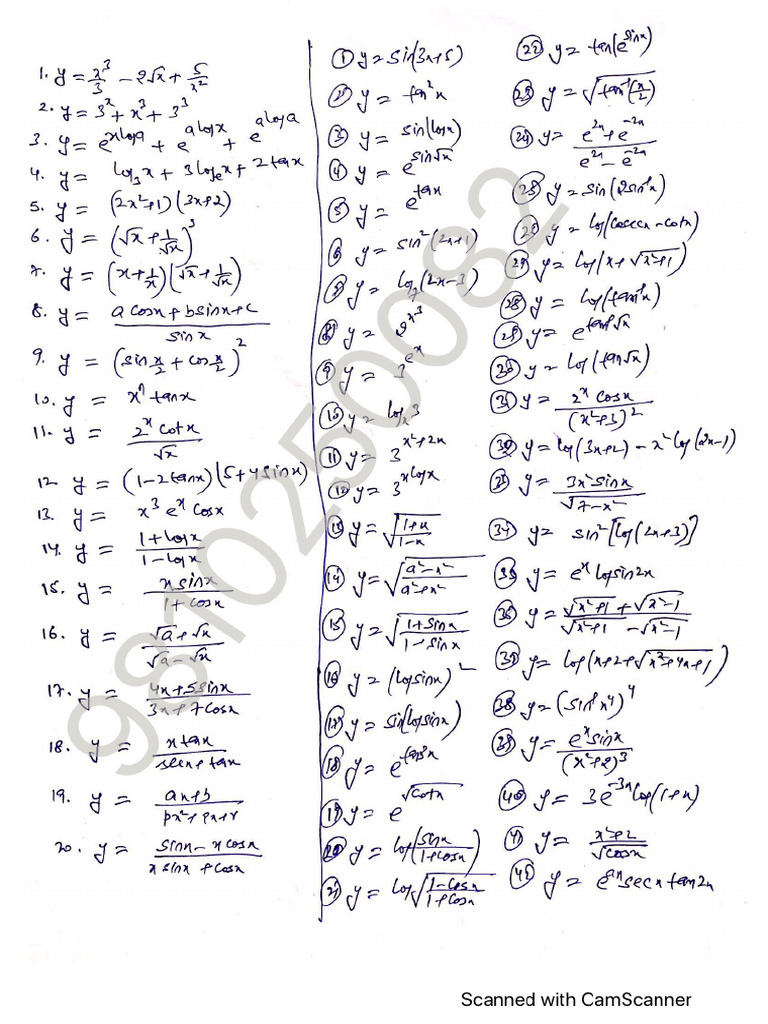 1. y = x³/3 - 2√x + 5/x²
2. y = 3ˣ + x³ + 3³
3. y = e^(x log a) + e^(a log x) + e^(a log a)
4. y = log₃x + 3logₑx + 2 tan x
5. y = (2x²+1)(3x+2)
6. y = (√x + 1/√x)³
7. y = (x + 1/x)(√x + 1/√x)
8. y = (a cosx + b sinx + c)/sin x
9. y = (sin x/2 + cos x/2)²
10. y = xⁿ tanx
11. y = 2ˣ cot x/√x
12. y = (1-2tanx)(5+4sinx)
13. y = x³ eˣ cosx
14. y = (1+logx)/(1-logx)
15. y = x sinx/(1+cosx)
16. y = (√a+√x)/(√a-√x)
17. y = (4x+5sinx)/(3x+7cosx)
18. y = x tanx/(secx+tanx)
19. y = (ax+b)/(px²+qx+r)
20. y = (sinx - x cosx)/(x sinx + cosx)
① y = sin(3x+5)
② y = tan²x
③ y = sin(logx)
④ y = e^(sin√x)
⑤ y = e^(tanx)
⑥ y = sin²(2x+1)
⑦ y = log₇(2x-3)
⑧ y = 2^(x³)
⑨ y = 3^(eˣ)
⑩ y = logₓ3
⑪ y = 3^(x²+2x)
⑫ y = 3^(x logx)
⑬ y = √((1+x)/(1-x))
⑭ y = √((a²-x²)/(a²+x²))
⑮ y = √((1+sinx)/(1-sinx))
⑯ y = (logsinx)²
⑰ y = sin(logsinx)
⑱ y = e^(tan3x)
⑲ y = e^(√cotx)
⑳ y = log(sinx/(1+cosx))
㉑ y = log√((1-cosx)/(1+cosx))
㉒ y = tan(e^(sinx))
㉓ y = √(tan⁻¹(x/2))
㉔ y = (e²ˣ+e⁻²ˣ)/(e²ˣ-e⁻²ˣ)
㉕ y = sin(2sin⁻¹x)
y = log(cosecx-cotx)
y = log(x+√(x²+1))
㉘ y = log(tan⁻¹x)
㉙ y = e^(tan⁻¹√x)
㉚ y = log(tan√x)
㉛ y = 2ˣ cosx/(x²+3)²
㉜ y = log(3x+2) - x² log(2x-1)
㉝ y = 3x² sinx/√(7-x²)
㉞ y = sin²[log(2x+3)]
y = eˣ logsin2x
㊱ y = (√(x²+1) + √(x²-1))/(√(x²+1) - √(x²-1))
y = log(x+2+√(x²+4x+1))
㊳ y = (sin⁻¹x⁴)⁴
㊴ y = eˣ sinx/(x²+2)³
㊵ y = 3e⁻³ˣ log(1+x)
㊶ y = (x²+2)/√cosx
y = e^(ax) secx tan2x
9810250082
Scanned with CamScanner